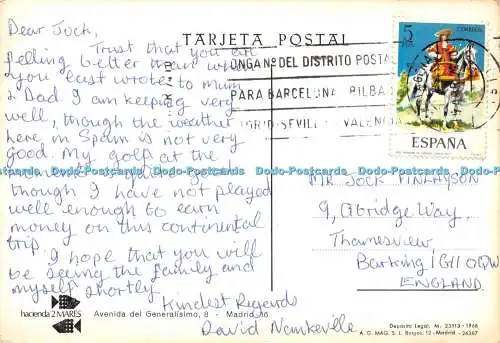 Dear Jock,
Trust that you are
feeling better than when
you last wrote to mum
& Dad. I am keeping very
well, though the weather
here in Spain is not very
good. My golf at the
though I have not played
well enough to earn
money on this continental
trip.
I hope that you will
be seeing the family and
myself shortly.
Kindest Regards
David
TARJETA POSTAL
PONGA Nº DEL DISTRITO POSTAL
PARA BARCELONA BILBA
MADRID-SEVILLA VALENCIA
5
CORREOS
ESPAÑA
MR. JOCK FINLAYSON
9, Abridge Way,
Thamesview,
Barking IG11 0QW
ENGLAND
hacienda 2 MARES
Avenida del Generalísimo, 8 - Madrid-16
Depósito Legal: M. 23513-1968
A. G. MAG. S. L. Burgos, 12 - Madrid - 26307
Dodo-Postcards